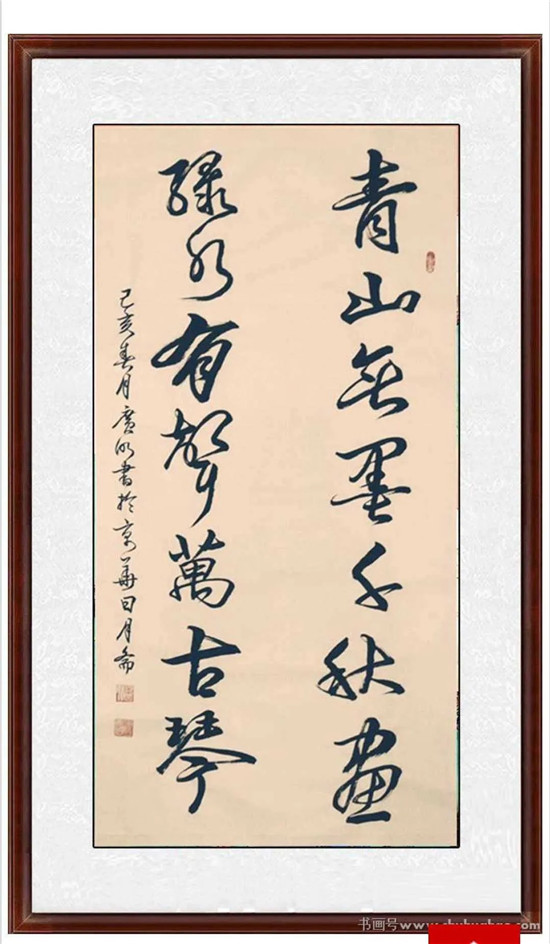 青山無墨千秋畫
緑水有聲萬古琴
己亥春月廣收書於京華日月齋
书画号www.